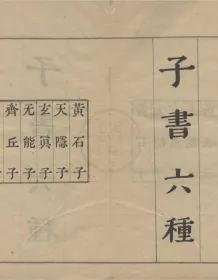 子書六種
黃石子
天隱子
玄真子
无能子
齊丘子